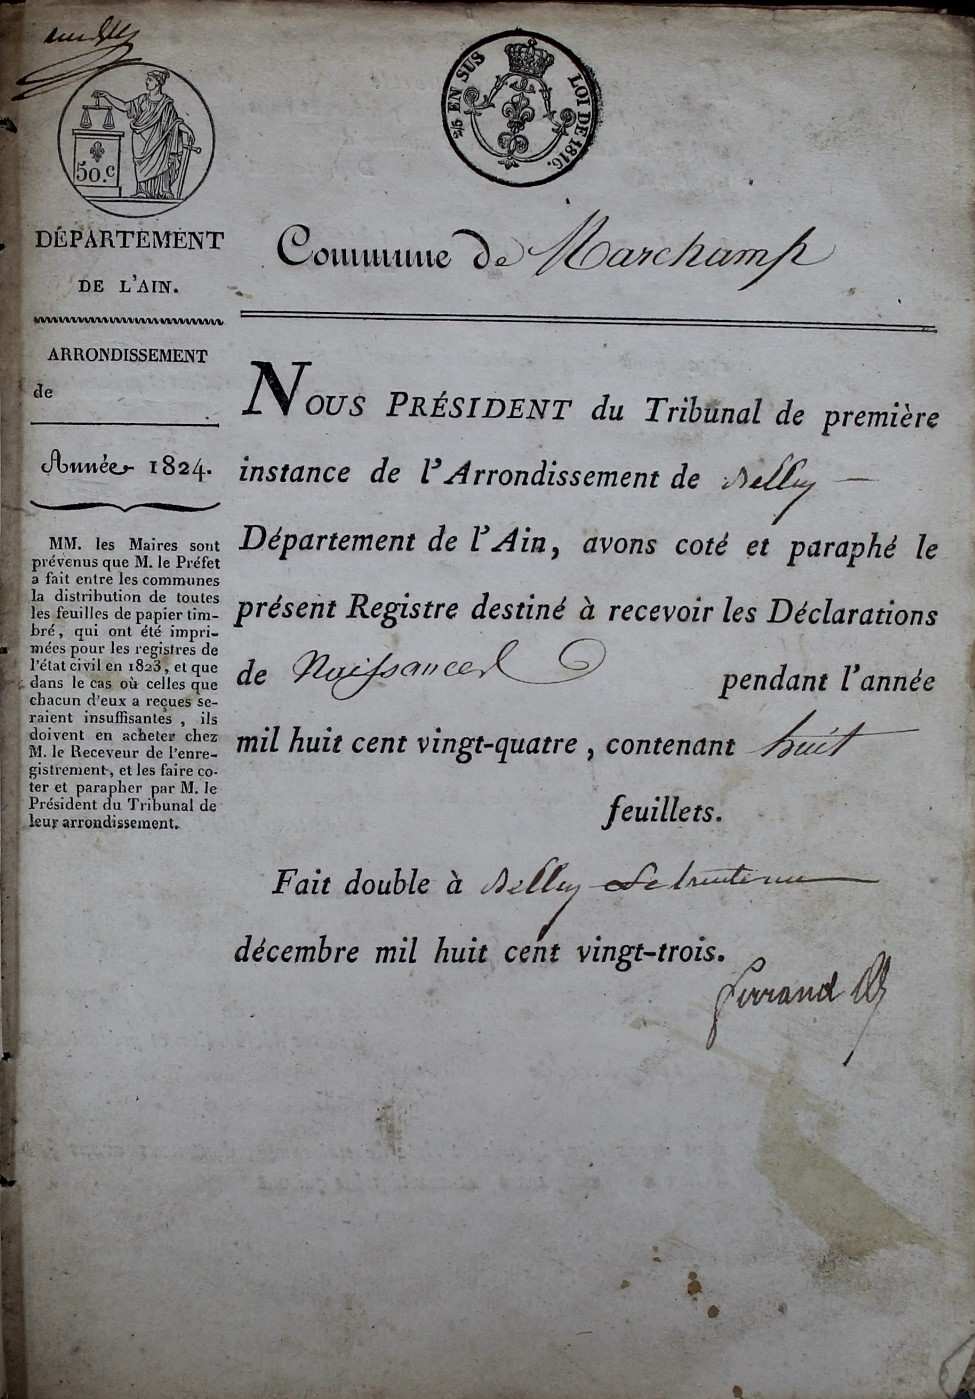 50.c
2/5 EN SUS LOI DE 1816.
DÉPARTEMENT
DE L'AIN.
ARRONDISSEMENT
de
Année 1824.
MM. les Maires sont
prévenus que M. le Préfet
a fait entre les communes
la distribution de toutes
les feuilles de papier tim-
bré, qui ont été impri-
mées pour les registres de
l'état civil en 1823, et que
dans le cas où celles que
chacun d'eux a reçues se-
raient insuffisantes, ils
doivent en acheter chez
M. le Receveur de l'enre-
gistrement, et les faire co-
ter et parapher par M. le
Président du Tribunal de
leur arrondissement.
Commune de Marchamp
NOUS PRÉSIDENT du Tribunal de première
instance de l'Arrondissement de Belley
Département de l'Ain, avons coté et paraphé le
présent Registre destiné à recevoir les Déclarations
de Naissances pendant l'année
mil huit cent vingt-quatre, contenant huit
feuillets.
Fait double à Belley Le trente un
décembre mil huit cent vingt-trois.
Ferrand